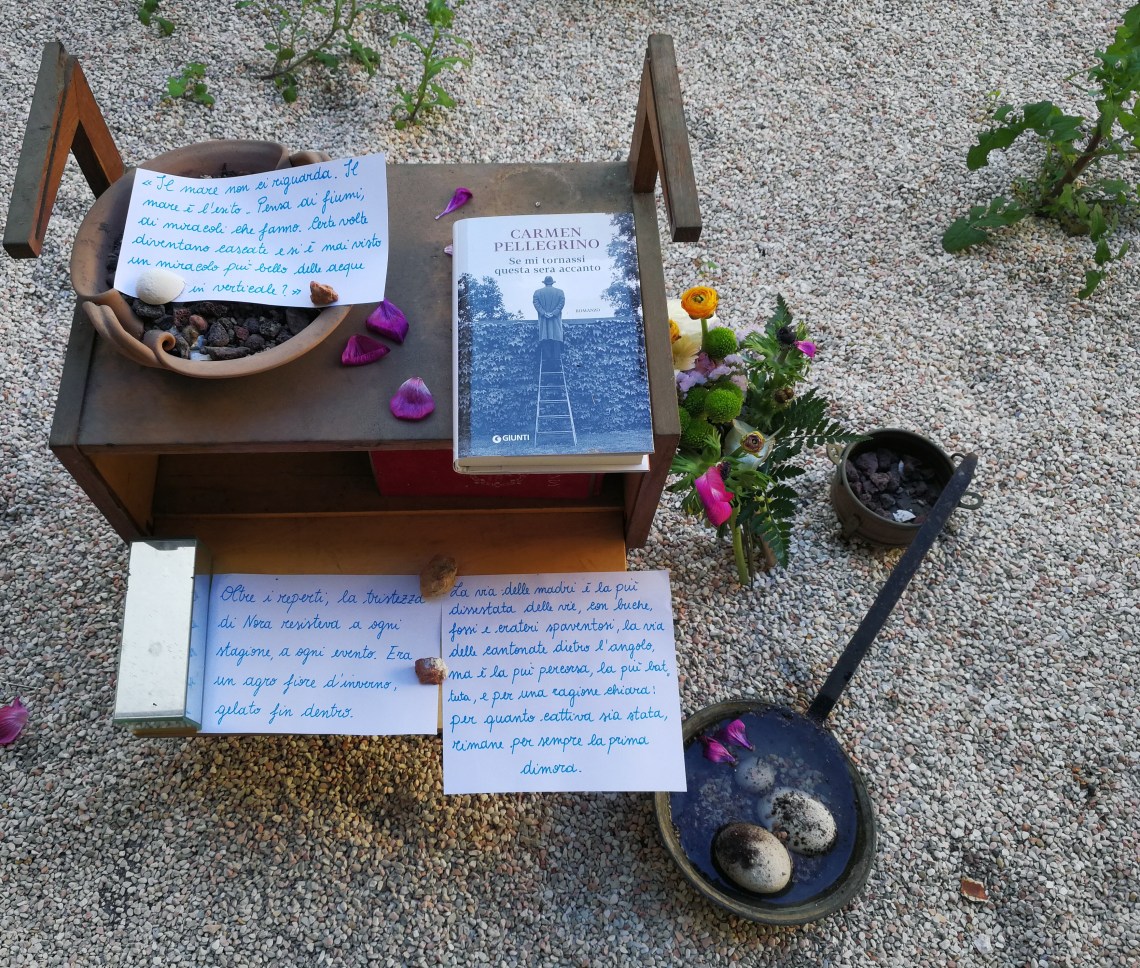 « Il mare non ci riguarda. Il
mare è l'esito. Pensa ai fiumi,
ai miracoli che fanno. Certe volte
diventano cascate e si è mai visto
un miracolo più bello delle acque
in verticale? »
CARMEN
PELLEGRINO
Se mi tornassi
questa sera accanto
ROMANZO
GIUNTI
Oltre i reperti, la tristezza
di Nora resisteva a ogni
stagione, a ogni evento. Era
un agro fiore d'inverno,
gelato fin dentro.
La via delle madri è la più
dissestata delle vie, con buche,
fossi e crateri spaventosi, la via
delle cantonate dietro l'angolo,
ma è la più percorsa, la più bat,
tuta, e per una ragione chiara:
per quanto cattiva sia stata,
rimane per sempre la prima
dimora.